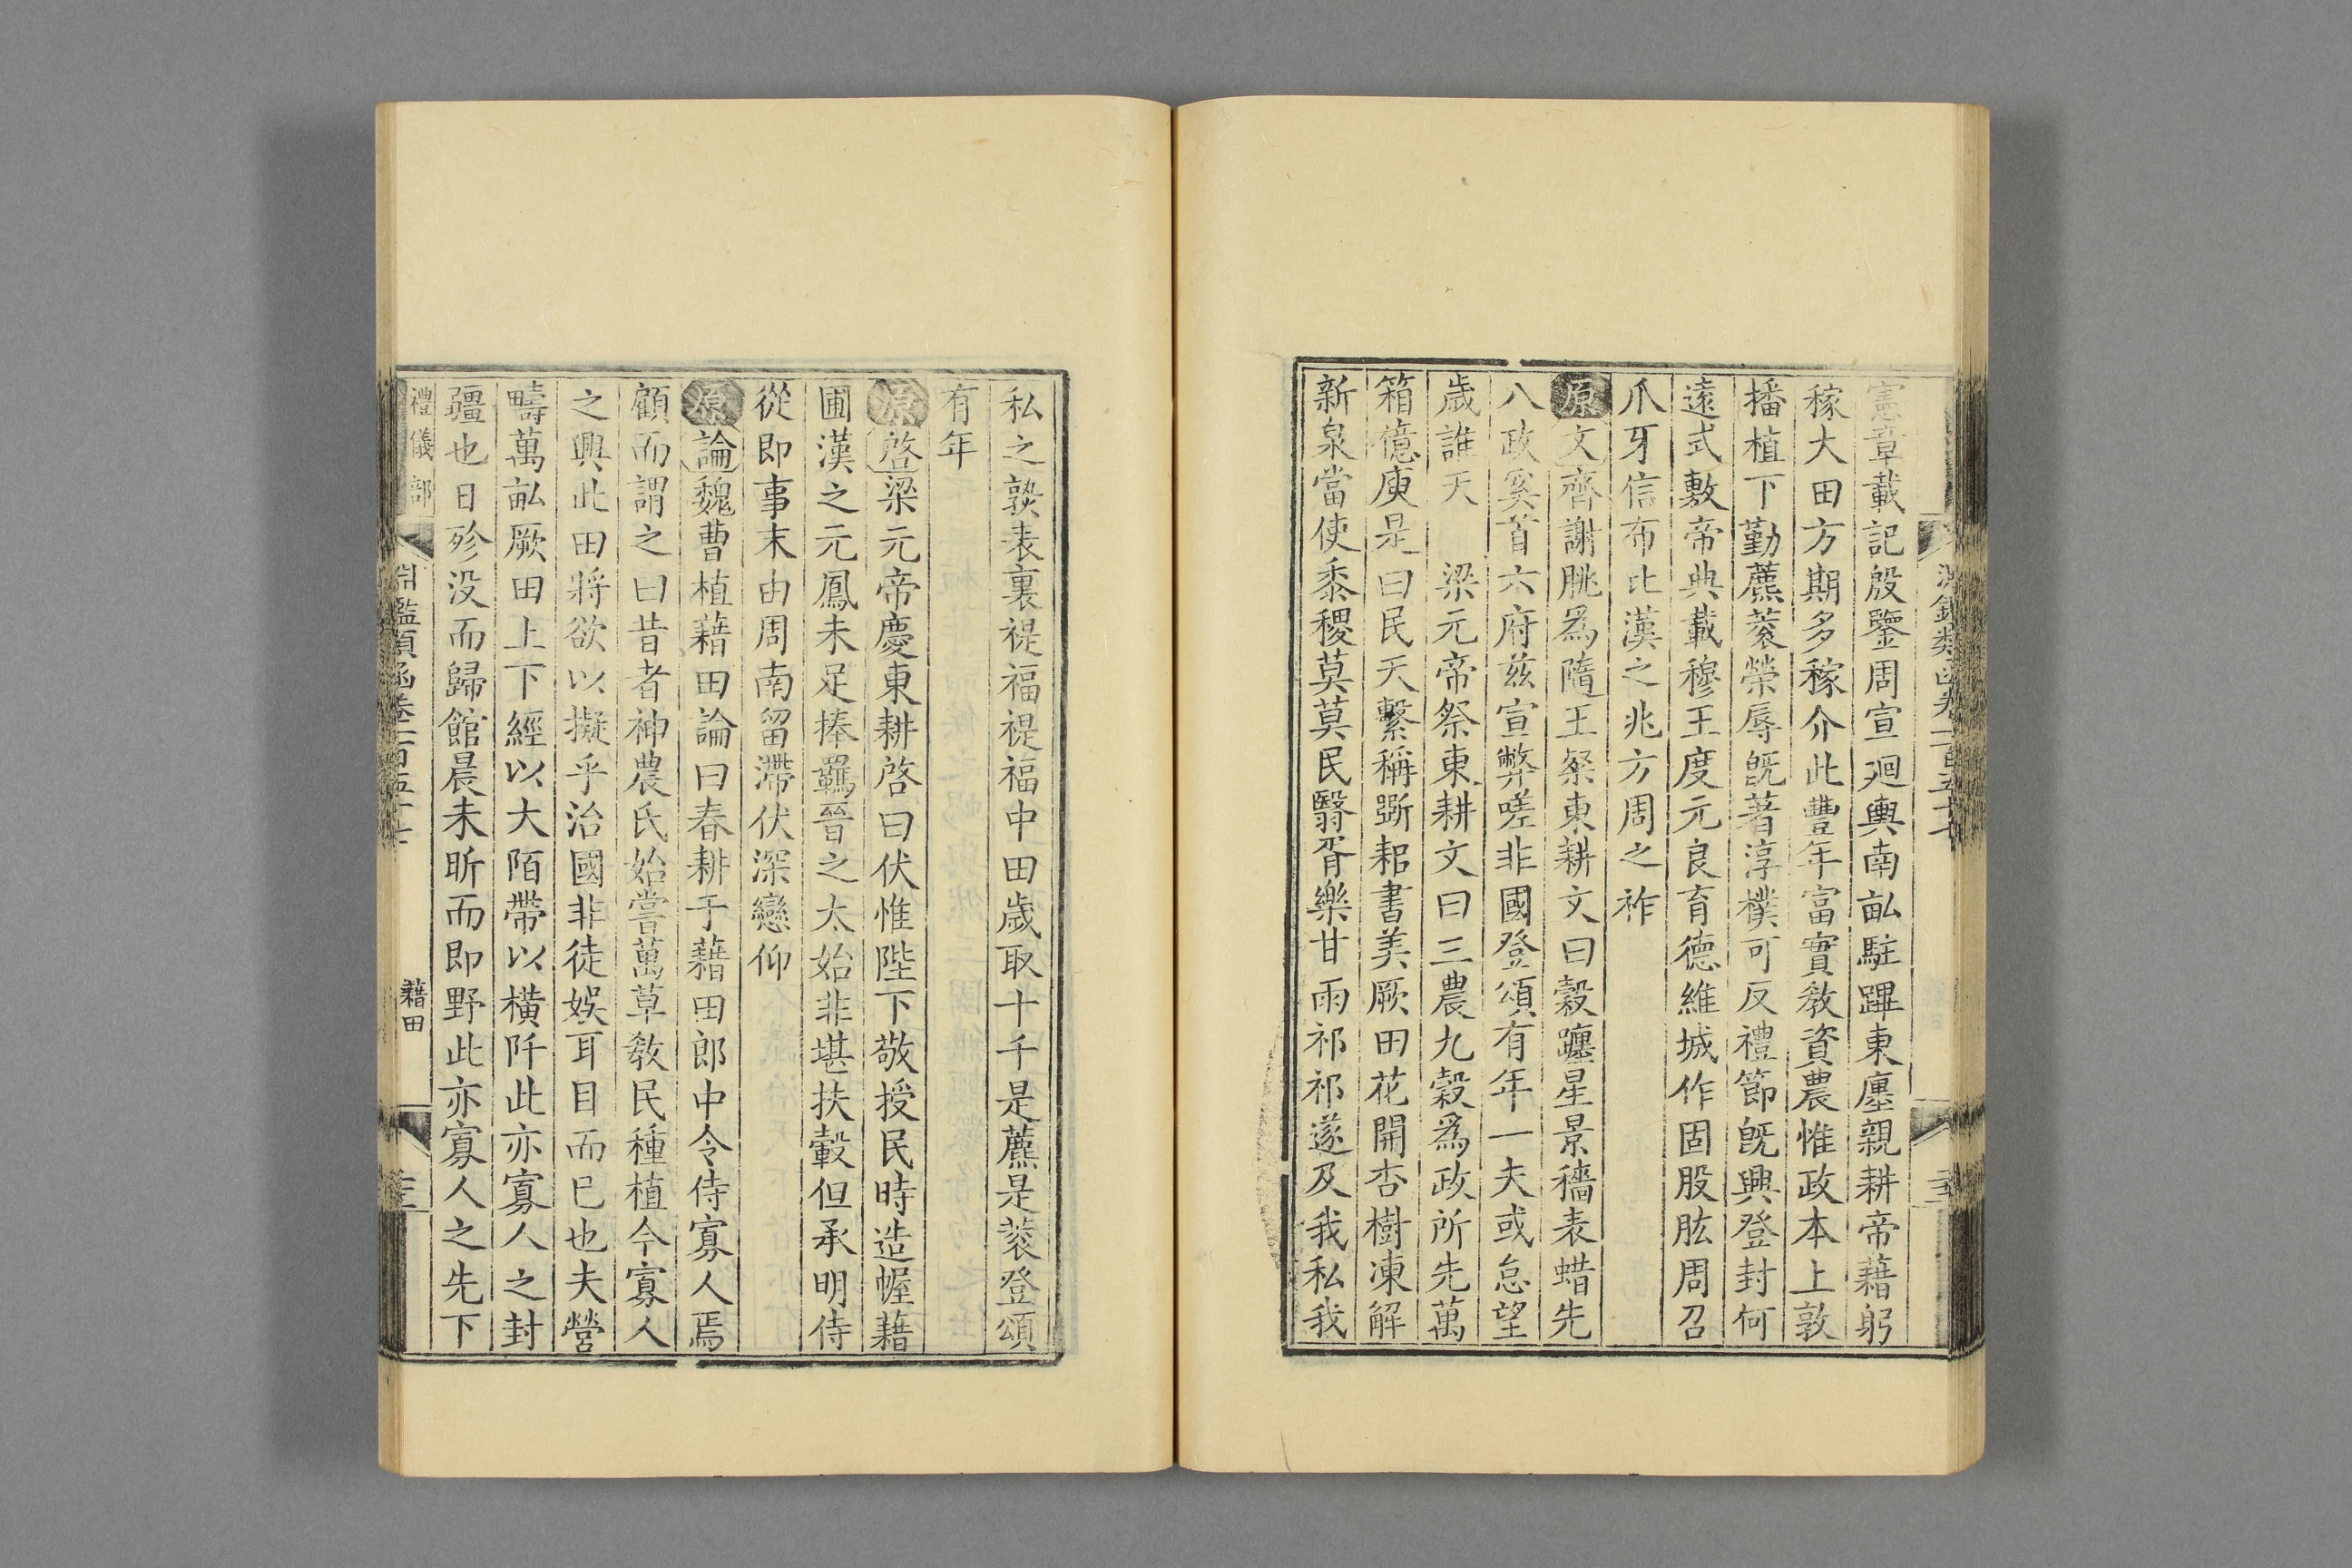 憲章載記殷鑒周宣廻輿南畝駐蹕東廛親耕帝藉躬
稼大田方期多稼介此豊年富實敎資農惟政本上敦
播植下勤藨蔉榮辱旣著淳樸可反禮節旣興登封何
遠式敷帝典載穆王度元良育德維城作固股肱周召
爪牙信布比漢之兆方周之祚
原文齊謝朓爲隨王祭東耕文曰穀躔星景穡表蜡先
八政奚首六府兹宣弊嗟非國登頌有年一夫或怠望
歲誰天　梁元帝祭東耕文曰三農九穀爲政所先萬
箱億庾是曰民天繫稱斲耜書美厥田花開杏樹凍解
新泉當使黍稷莫莫民翳胥樂甘雨祁祁遂及我私我
私之孰表裏禔福禔福中田歲取十千是藨是蔉登頌
有年
原啓梁元帝慶東耕啓曰伏惟陛下敬授民時造幄藉
圃漢之元鳳未足捧羈晉之太始非堪扶轂但承明侍
從即事末由周南留滯伏深戀仰
原論魏曹植藉田論曰春耕于藉田郎中令侍寡人焉
顧而謂之曰昔者神農氏始嘗萬草敎民種植今寡人
之興此田將欲以擬乎治國非徒娯耳目而已也夫營
疇萬畝厥田上下經以大陌帶以橫阡此亦寡人之封
疆也日殄没而歸館晨未昕而即野此亦寡人之先下
禮儀部
藉田